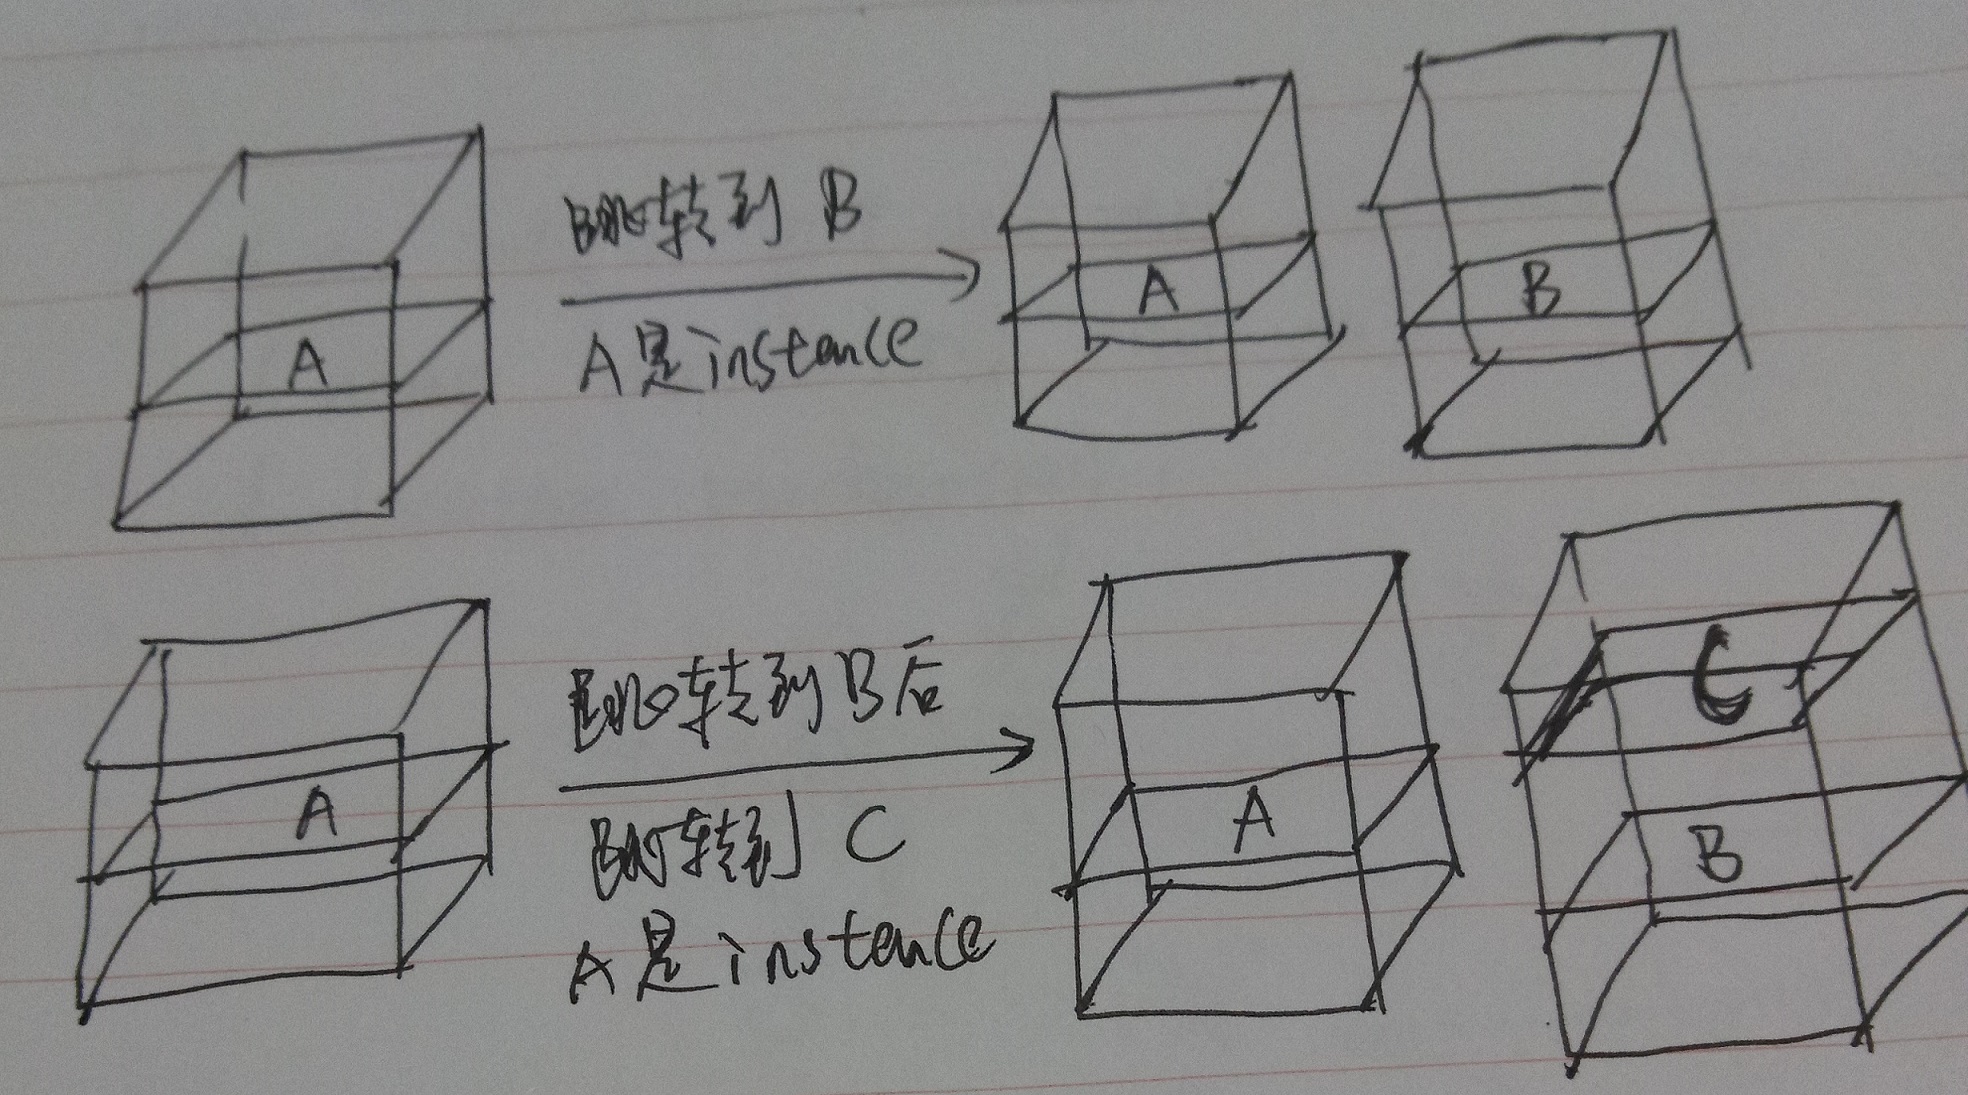 A
跳转到 B
A是instence
A
B
A
跳转到B后
跳转到 C
A是instence
A
C
B